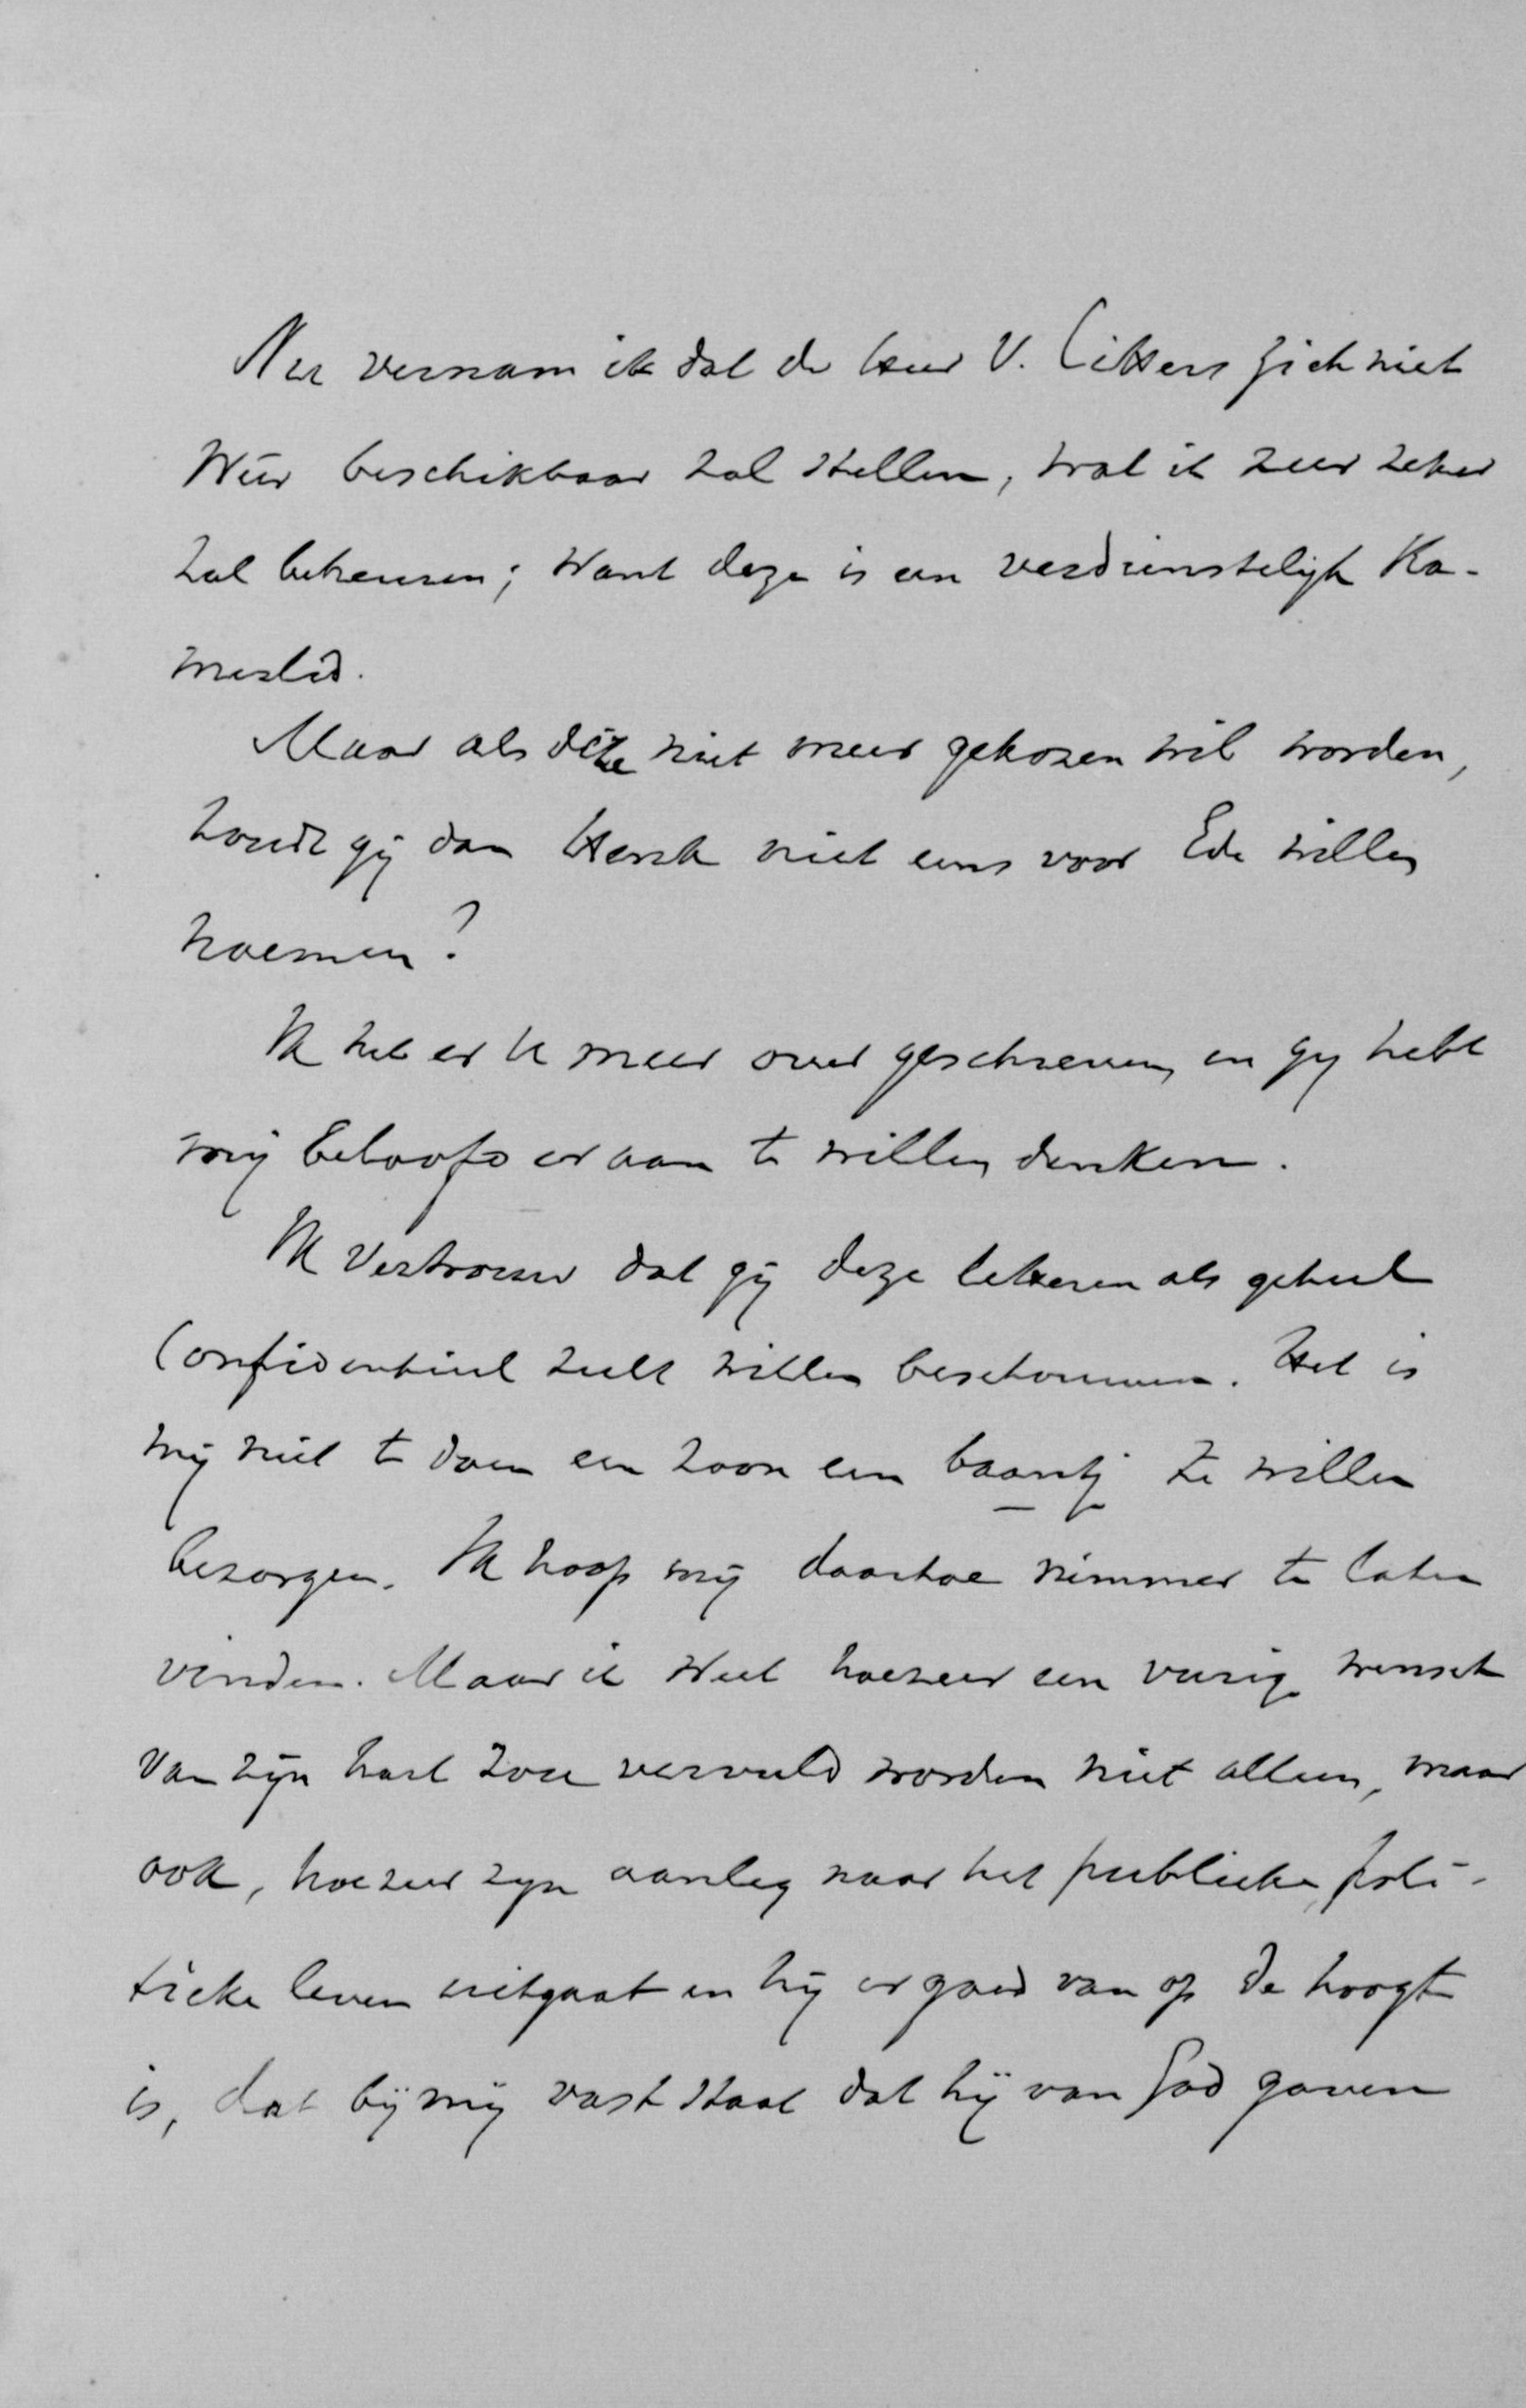 Nu vernam ik dat de heer V. Citters zich niet
weer beschikbaar zal stellen, wat ik zeer zeker
zal betreuren; want deze is een verdienstelijk Ka-
merlid.
Maar als deze niet meer gekozen wil worden,
zoudt gij dan Henk niet eens voor Ede willen
noemen?
Ik heb er U meer over geschreven, en gij hebt
mij beloofd er aan te willen denken.
Ik vertrouw dat gij deze letteren als geheel
Confidentieel zult willen beschouwen. Het is
mij niet te doen een zoon een baantje te willen
bezorgen. Ik hoop mij daartoe nimmer te laten
vinden. Maar ik weet hoezeer een vurige wensch
van zijn hart zou vervuld worden niet alleen, maar
ook, hoezeer zijn aanleg naar het publieke, poli-
tieke leven uitgaat en hij er goed van op de hoogte
is, dat bij mij vast staat dat hij van God gaven